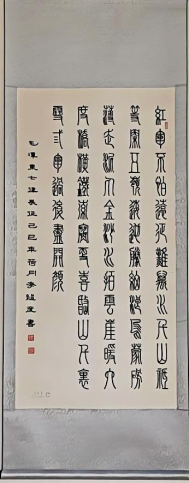 紅軍不怕遠征難萬水千山祇
等閑五嶺逶迤騰細浪烏蒙磅
礴走泥丸金沙水拍雲崖暖大
度橋橫鐵索寒更喜岷山千里
雪三軍過後盡開顏
毛澤東七律長征己巳年荷月李書